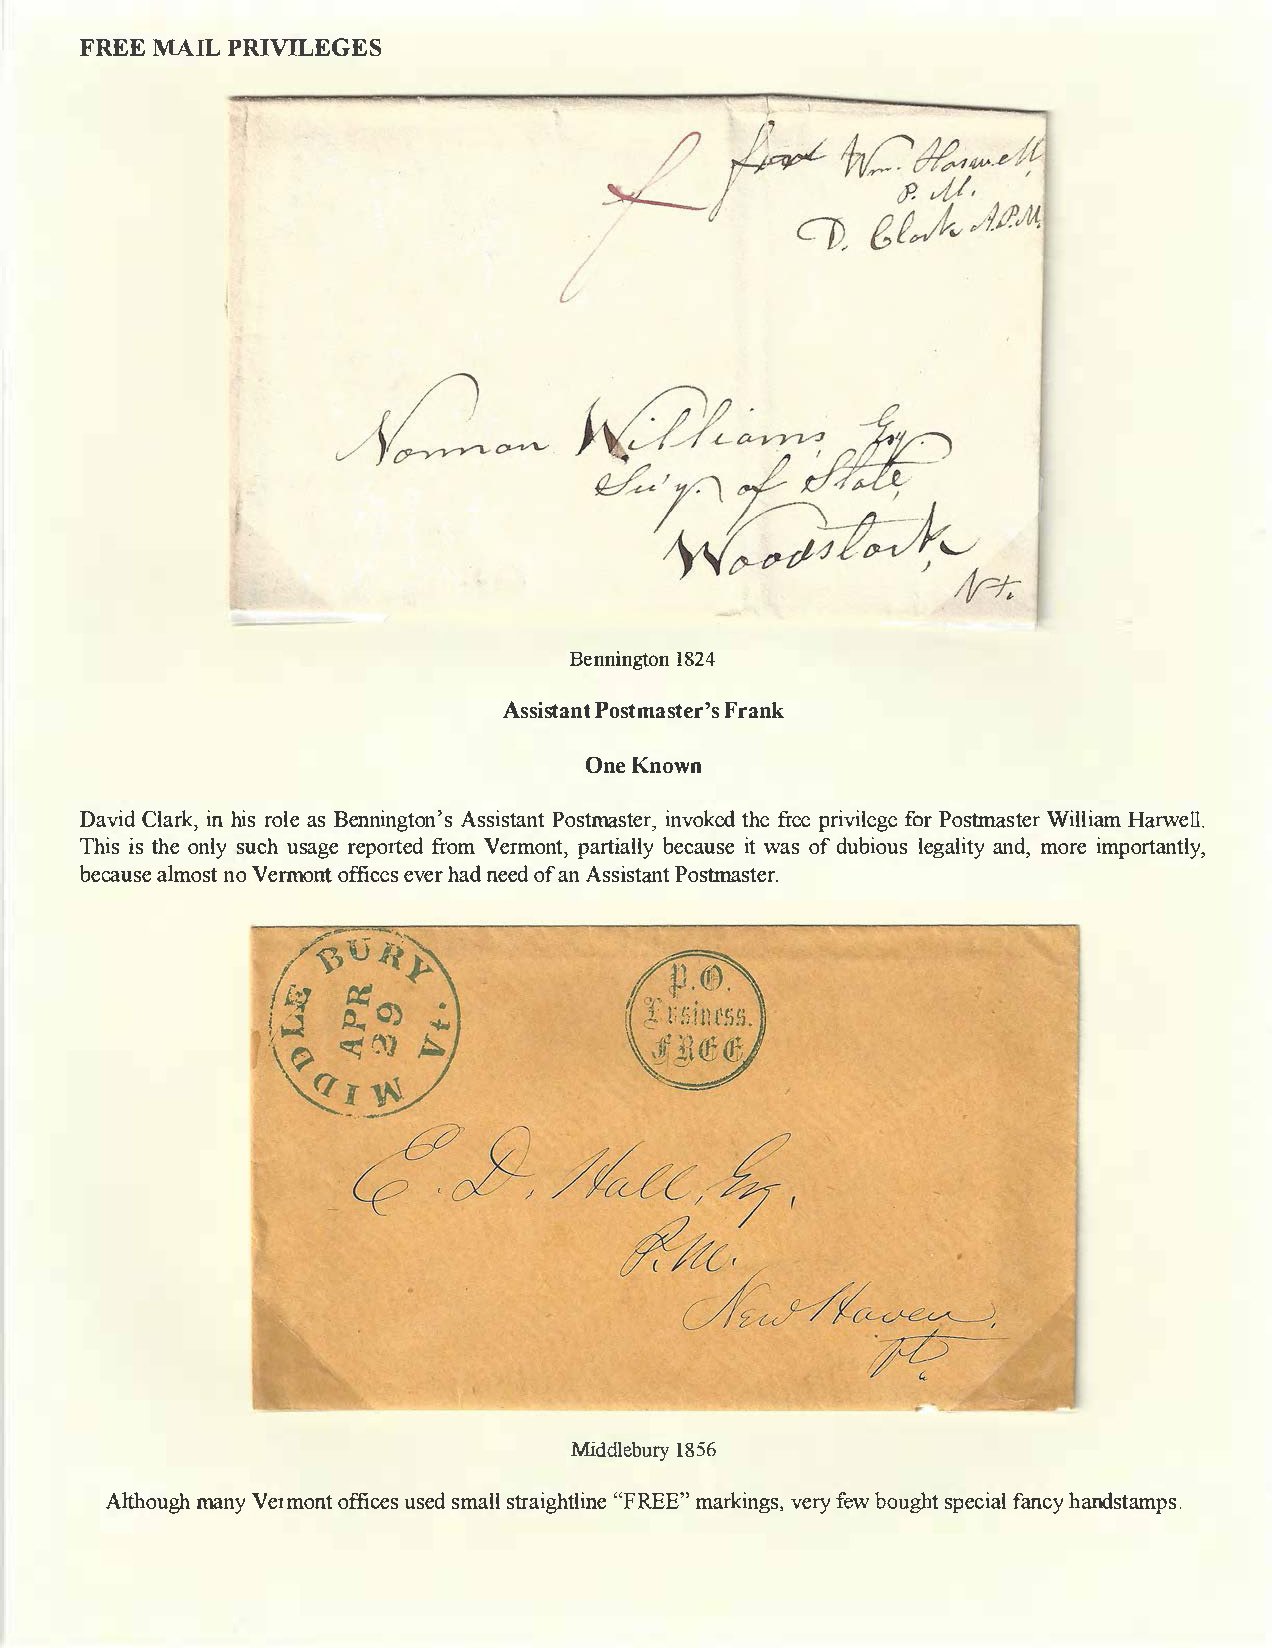 FREE MAIL PRIVILEGES
f
free Wm. Haswell,
P. M.
D. Clark A.P.M.
Norman Williams, Esq.
Sec'y. of State,
Woodstock,
Vt.
Bennington 1824
Assistant Postmaster's Frank
One Known
David Clark, in his role as Bennington's Assistant Postmaster, invoked the free privilege for Postmaster William Harwell.
This is the only such usage reported from Vermont, partially because it was of dubious legality and, more importantly,
because almost no Vermont offices ever had need of an Assistant Postmaster.
MIDDLEBURY Vt.
APR
29
P.O.
Business.
FREE
E. D. Hall, Esq.
P.M.
New Haven,
Vt.
Middlebury 1856
Although many Vermont offices used small straightline “FREE” markings, very few bought special fancy handstamps.